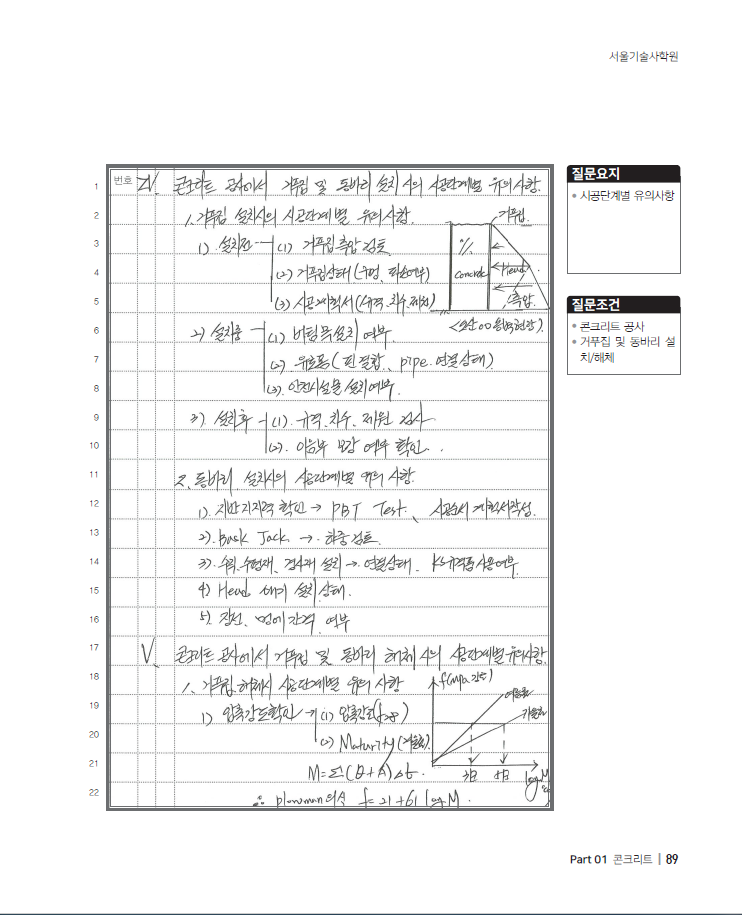 서울기술사학원
번호 Ⅳ. 콘크리트 공사에서 거푸집 및 동바리 설치시의 시공단계별 유의사항.
1. 거푸집 설치시의 시공단계별 유의사항.
1) 설치전 (1) 거푸집측압 검토
(2) 거푸집상태
(3) 시공계획서(규격·치수·제원)
거푸집
concrete
Head
측압
2) 설치중 (1) 버팀목설치 여부.
(2) 유효폭(핀결합, pipe 연결상태)
(3) 안전시설물 설치여부.
3) 설치후 (1). 규격, 치수, 제원 검사
(2). 이음부 보강 여부 확인.
2. 동바리 설치시의 시공단계별 유의 사항.
1). 지반지지력 확인 → PBT Test, 시공순서 계획서작성.
2). Jack → 하중검토
3). 수직, 수평재, 경사재 설치 → 연결상태. KS규격품사용여부
4) Head 설치상태.
5) 장선, 멍에간격 여부
Ⅴ. 콘크리트 공사에서 거푸집 및 동바리 해체시의 시공단계별유의사항.
1. 거푸집해체시 시공단계별 유의 사항
1) 압축강도확인 → (1) 압축강도
(2) Maturity
M=Σ(θ+A)Δt.
∴ plowman의식 f=21+61 log M.
질문요지
• 시공단계별 유의사항
질문조건
• 콘크리트 공사
• 거푸집 및 동바리 설
치/해체
1
2
3
4
5
6
7
8
9
10
11
12
13
14
15
16
17
18
19
20
21
22
Part 01 콘크리트 | 89